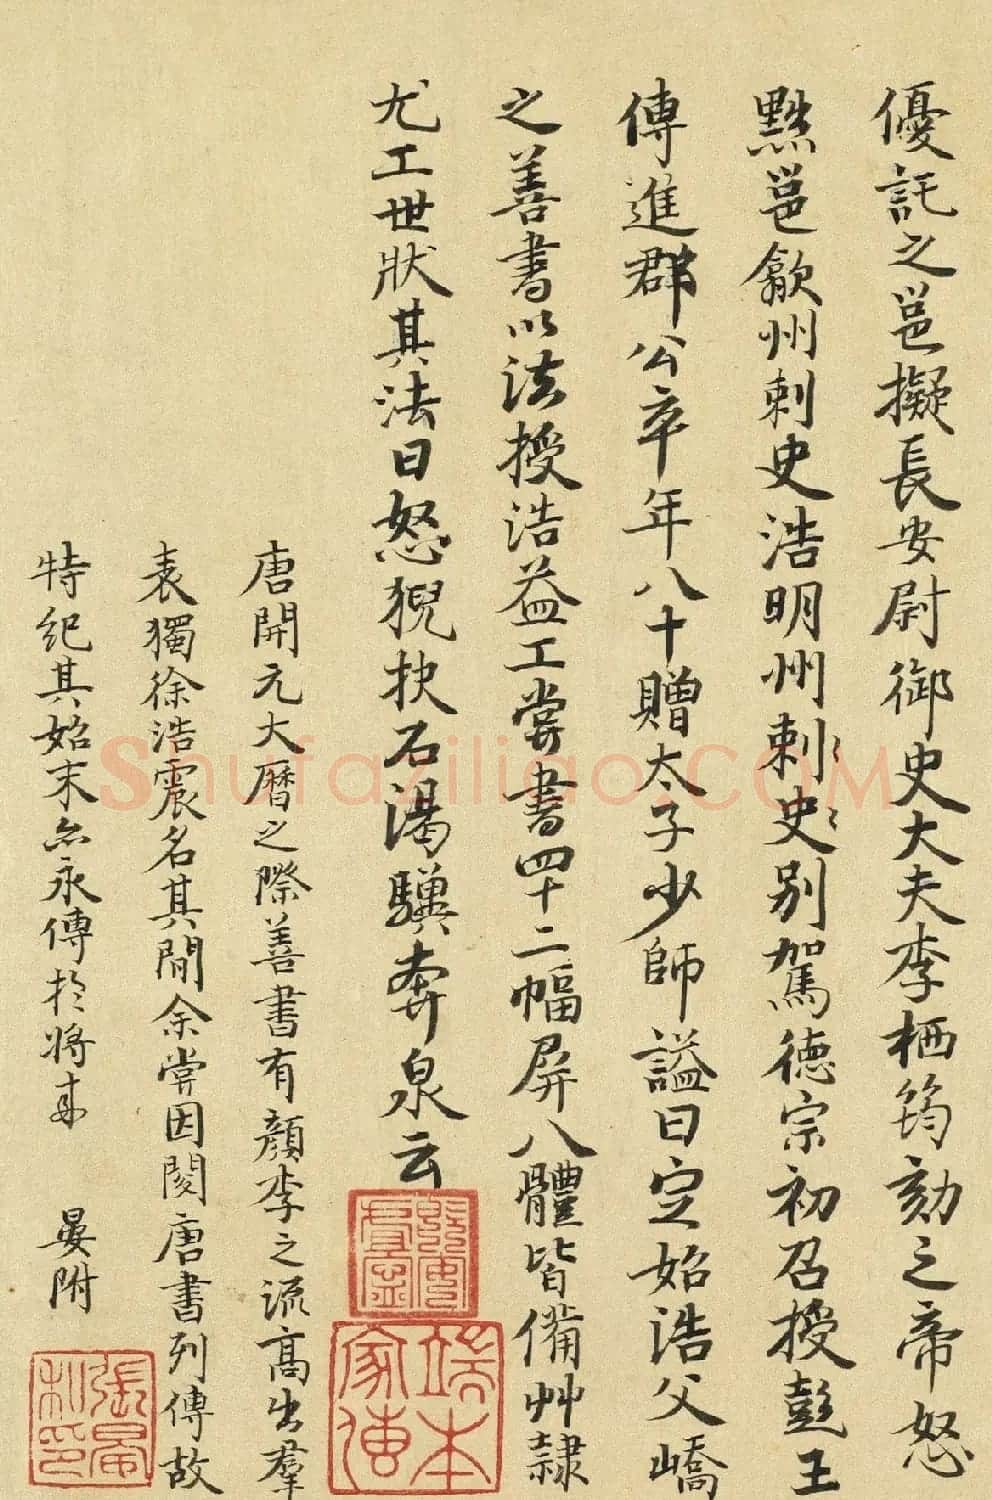 優託之邕擬長安尉御史大夫李栖筠劾之帝怒
黜邕歙州刺史浩明州刺史別駕德宗初召授彭王
傅進郡公卒年八十贈太子少師謚曰定始浩父嶠
之善書以法授浩益工嘗書四十二幅屏八體皆備艸隸
尤工世狀其法曰怒猊抉石渴驥奔泉云
唐開元大曆之際善書有顏李之流高出羣
表獨徐浩震名其間余嘗因閱唐書列傳故
特紀其始末亦永傳於將來 晏附
端本家傳
張晏私印
shufaziliao.COM